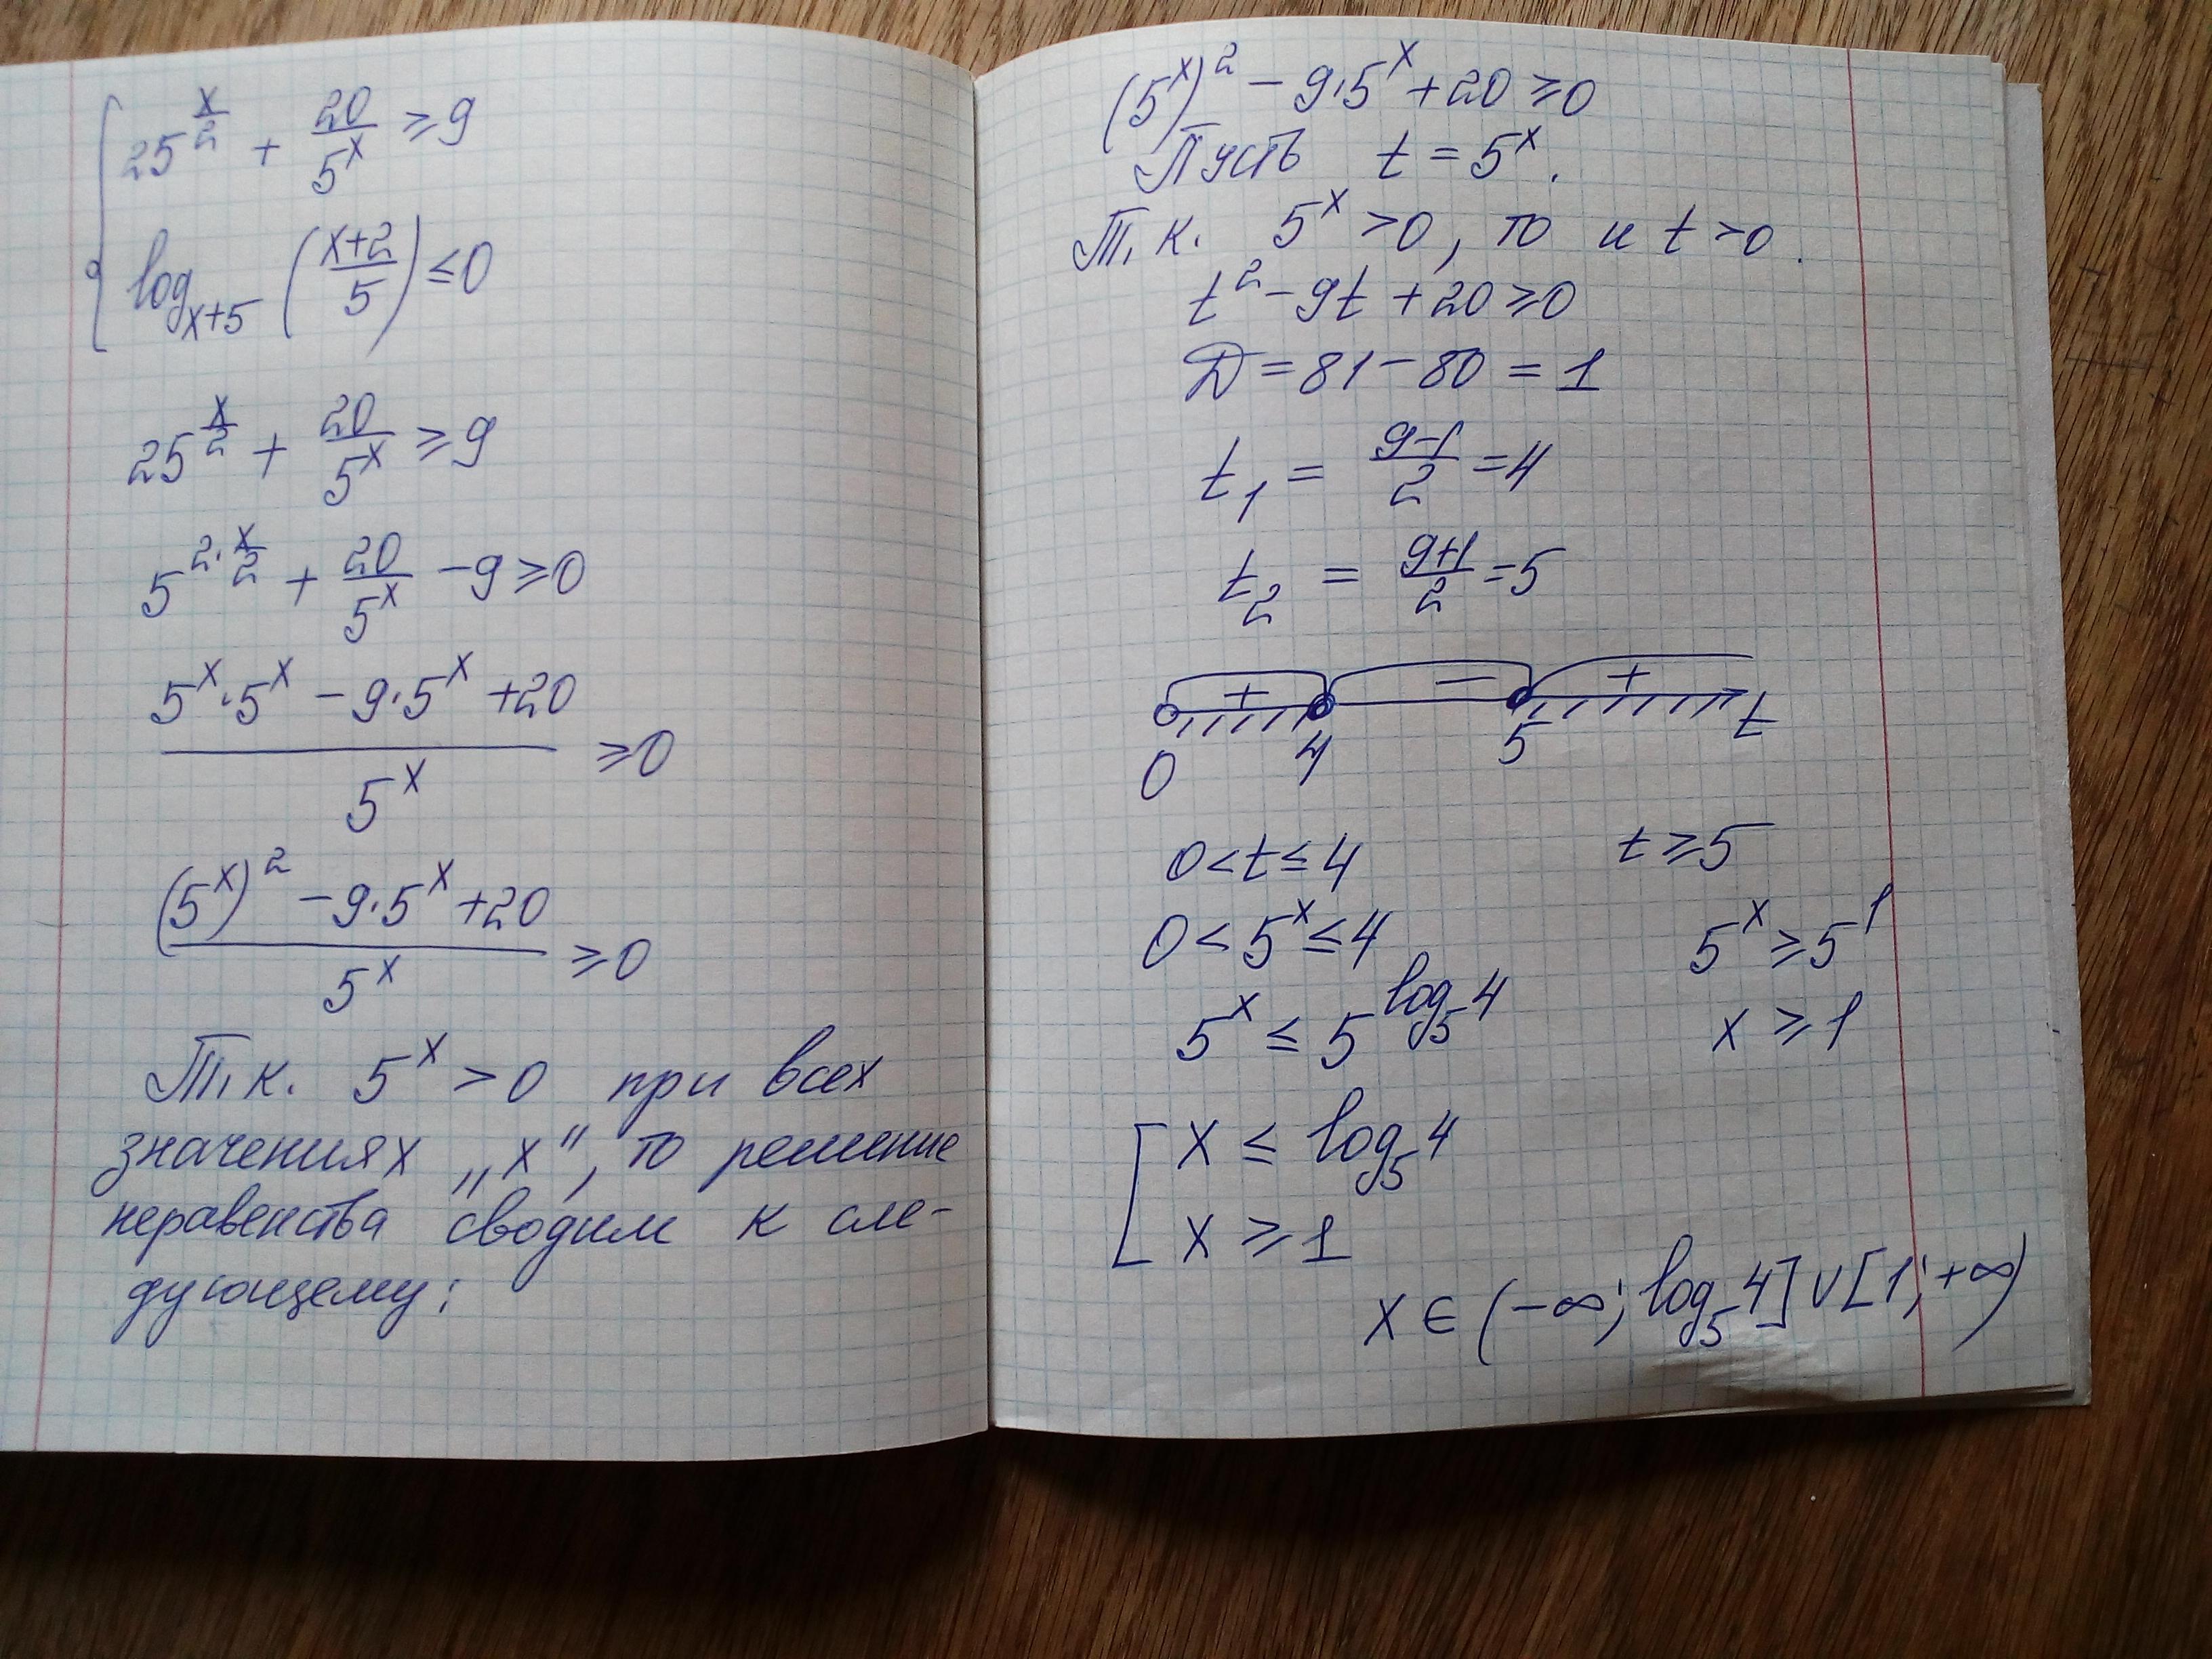 25^(x/2) + 20/5^x ≥ 9
log_(x+5) ((x+2)/5) ≤ 0
25^(x/2) + 20/5^x ≥ 9
5^(2·x/2) + 20/5^x − 9 ≥ 0
(5^x·5^x − 9·5^x + 20)/5^x ≥ 0
((5^x)^2 − 9·5^x + 20)/5^x ≥ 0
Т.к. 5^x > 0 при всех
значениях „x“, то решение
неравенства сводим к сле-
дующему:
(5^x)^2 − 9·5^x + 20 ≥ 0
Пусть t = 5^x.
Т.к. 5^x > 0, то и t > 0.
t^2 − 9t + 20 ≥ 0
D = 81 − 80 = 1
t_1 = (9−1)/2 = 4
t_2 = (9+1)/2 = 5
+ − +
0 4 5 t
0 < t ≤ 4 t ≥ 5
0 < 5^x ≤ 4 5^x ≥ 5^1
5^x ≤ 5^(log_5 4) x ≥ 1
[ x ≤ log_5 4
x ≥ 1
x ∈ (−∞; log_5 4] ∪ [1; +∞)